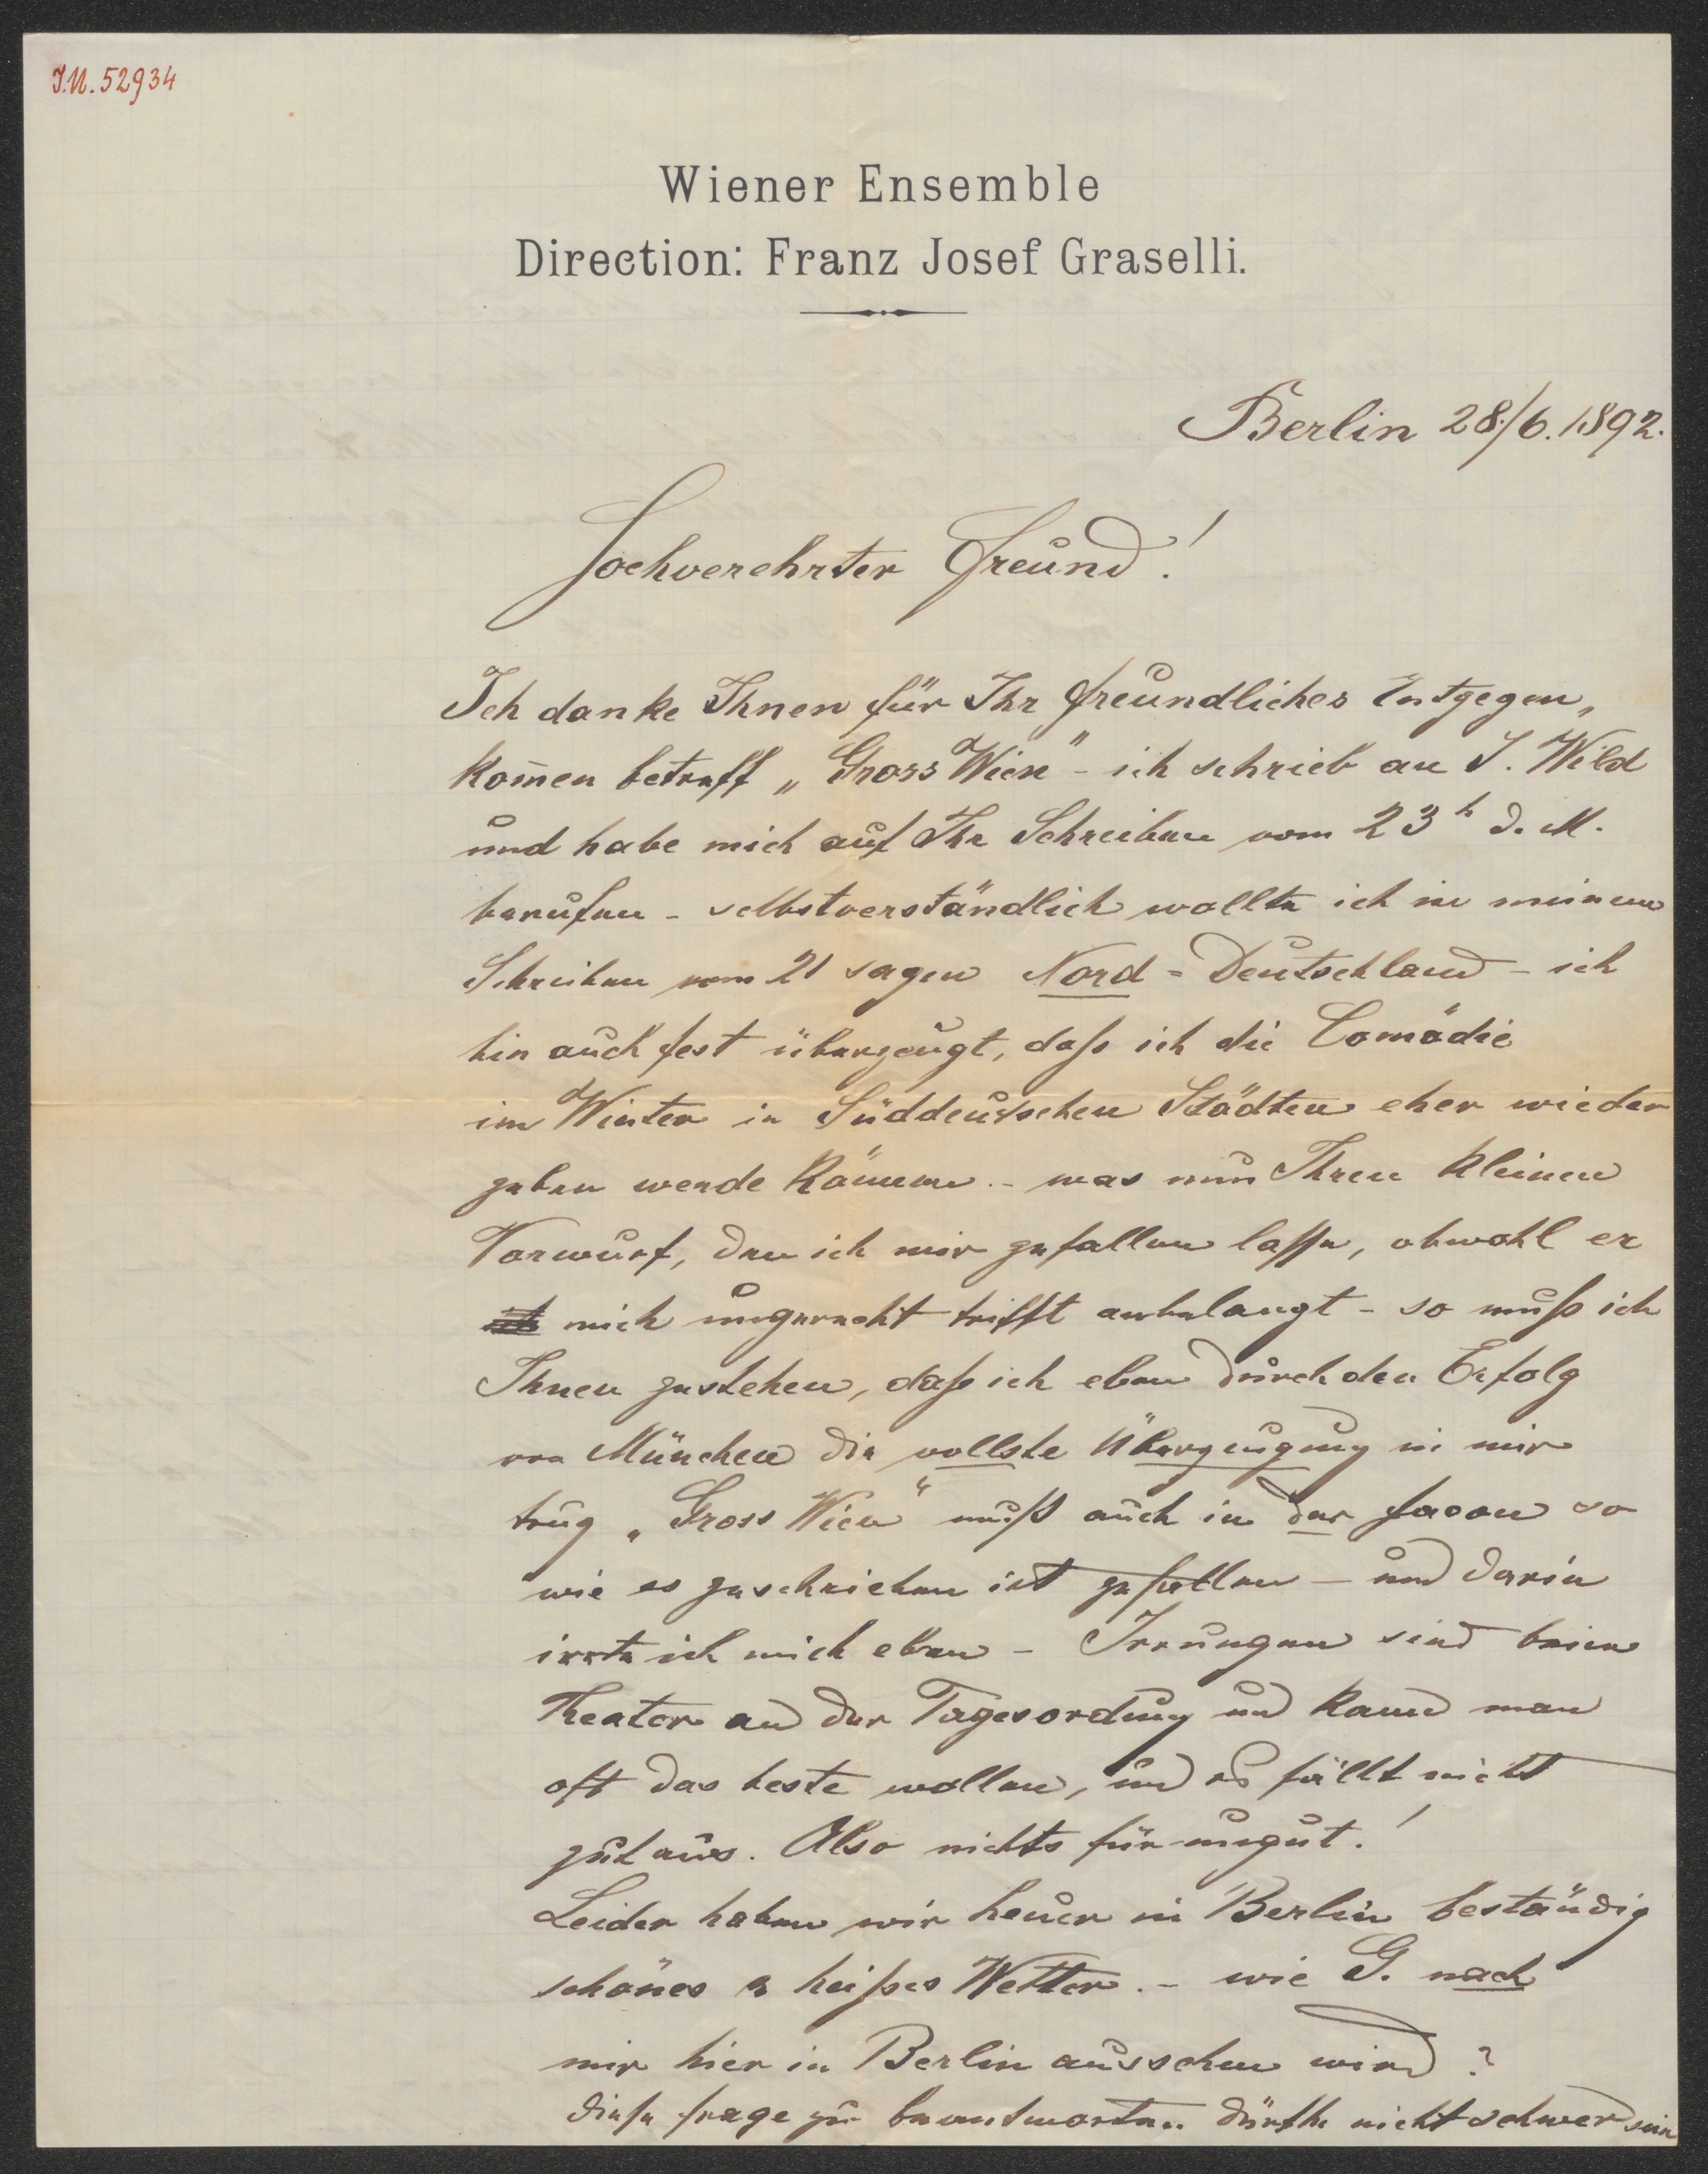 J.N. 52934
Wiener Ensemble
Direction: Franz Josef Graselli.
Berlin 28./6. 1892.
Hochverehrter Freund!
Ich danke Ihnen für Ihr freundliches Entgegen„
kom̄en betreff „Gross Wien" - ich schrieb an J. Wild
und habe mich auf Ihr Schreiben vom 23t d. M.
berufen - selbstverständlich wollte ich in meinem
Schreiben vom 21 sagen Nord-Deutschland - ich
bin auch fest überzeugt, daß ich die Comödie
im Winter in Süddeutschen Städten eher wieder
geben werde können. - was nun Ihren kleinen
Vorwurf, den ich mir gefallen lasse, obwohl er
mich ungerecht trifft anbelangt - so muß ich
Ihnen gestehen, daß ich eben durch den Erfolg
von München die vollste Überzeugung in mir
trug „Gross Wien" muß auch in der facon so
wie es geschrieben ist gefallen - und darin
irrte ich mich eben - Irrungen sind beim
Theater an der Tagesordung und kann man
oft das beste wollen, und es fällt nicht
gut aus. Also nichts für ungut!
Leider haben wir heuer in Berlin beständig
schönes & heißes Wetter. - wie G. nach
mir hier in Berlin aussehen wird?
diese frage zu beantworten dürfte nicht schwer sein